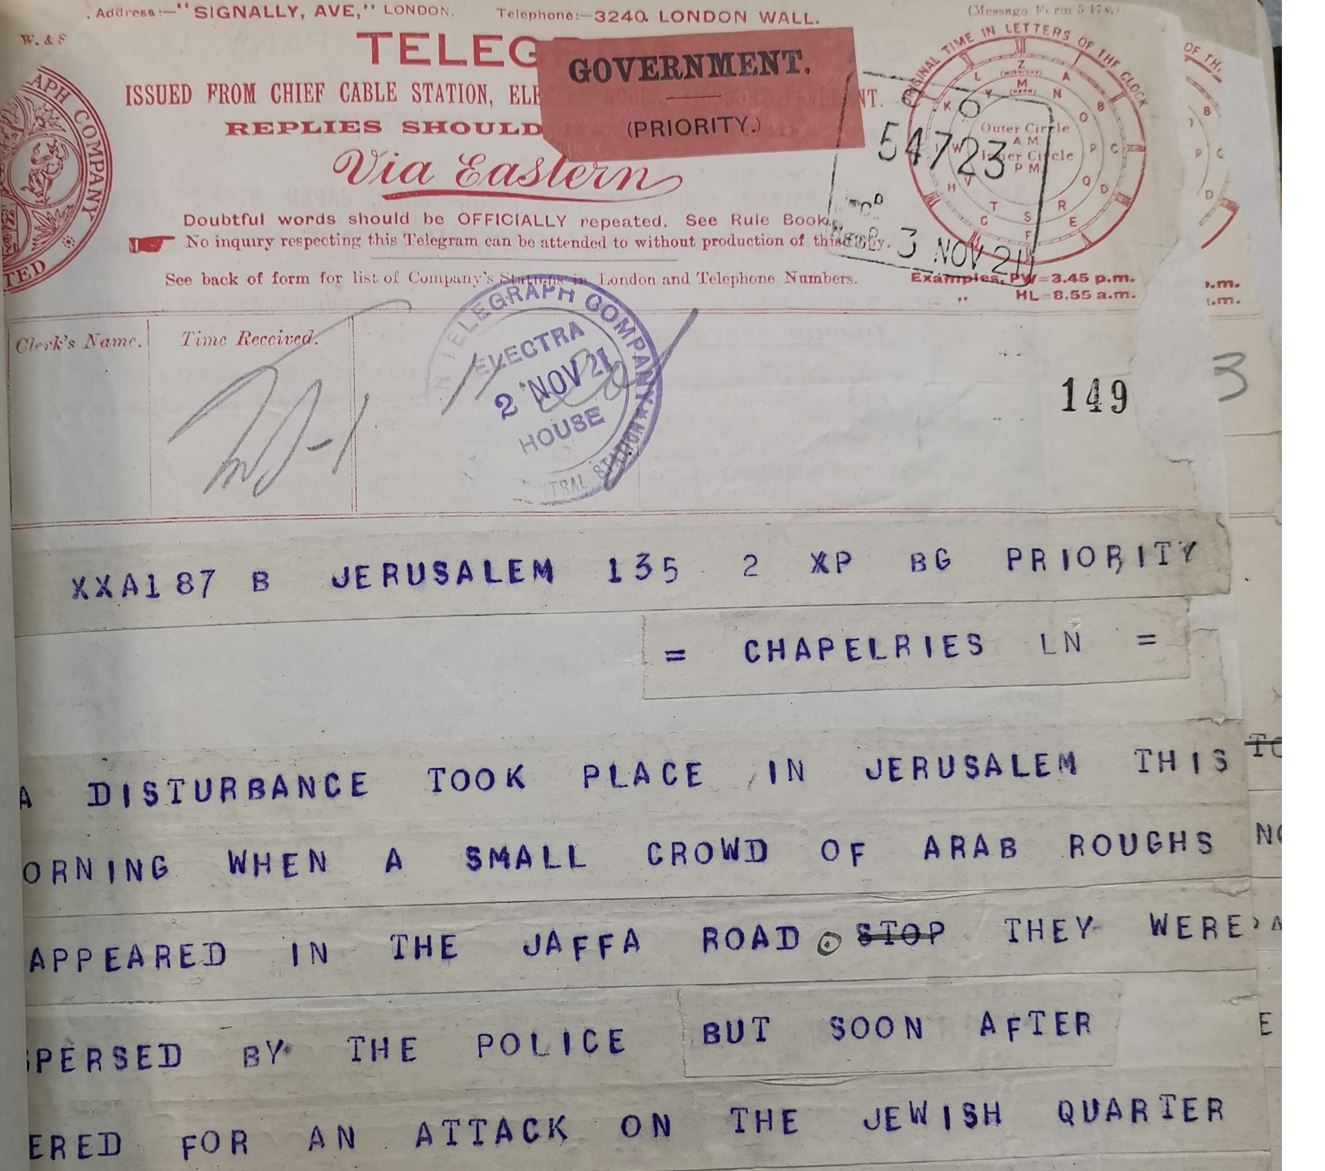 Address:—"SIGNALLY, AVE," LONDON. Telephone:—3240 LONDON WALL.
W. & S
TELEG
GOVERNMENT.
(PRIORITY.)
ISSUED FROM CHIEF CABLE STATION,
REPLIES SHOULD
Via Eastern
Doubtful words should be OFFICIALLY repeated. See Rule Book.
No inquiry respecting this Telegram can be attended to without production of this
See back of form for list of Company's Stations in London and Telephone Numbers.
ORIGINAL TIME IN LETTERS OF THE CLOCK
Outer Circle
A.M.
Inner Circle
P M.
54723
3 NOV 21
Examples, PW=3.45 p.m.
" HL=8.55 a.m.
Clerk's Name. Time Received.
TELEGRAPH COMPANY
ELECTRA
2 NOV 21
HOUSE
STATION
149
XXA187 B JERUSALEM 135 2 XP BG PRIORITY
= CHAPELRIES LN =
A DISTURBANCE TOOK PLACE IN JERUSALEM THIS
ORNING WHEN A SMALL CROWD OF ARAB ROUGHS
APPEARED IN THE JAFFA ROAD STOP THEY WERE
PERSED BY THE POLICE BUT SOON AFTER
ERED FOR AN ATTACK ON THE JEWISH QUARTER